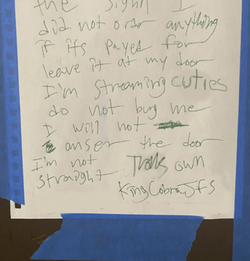 the sign I
did not order anything
if its payed for
leave it at my door
I'm streaming cuties
do not bug me
I will not
anser the door
I'm not own
straight
KingCobraJFS